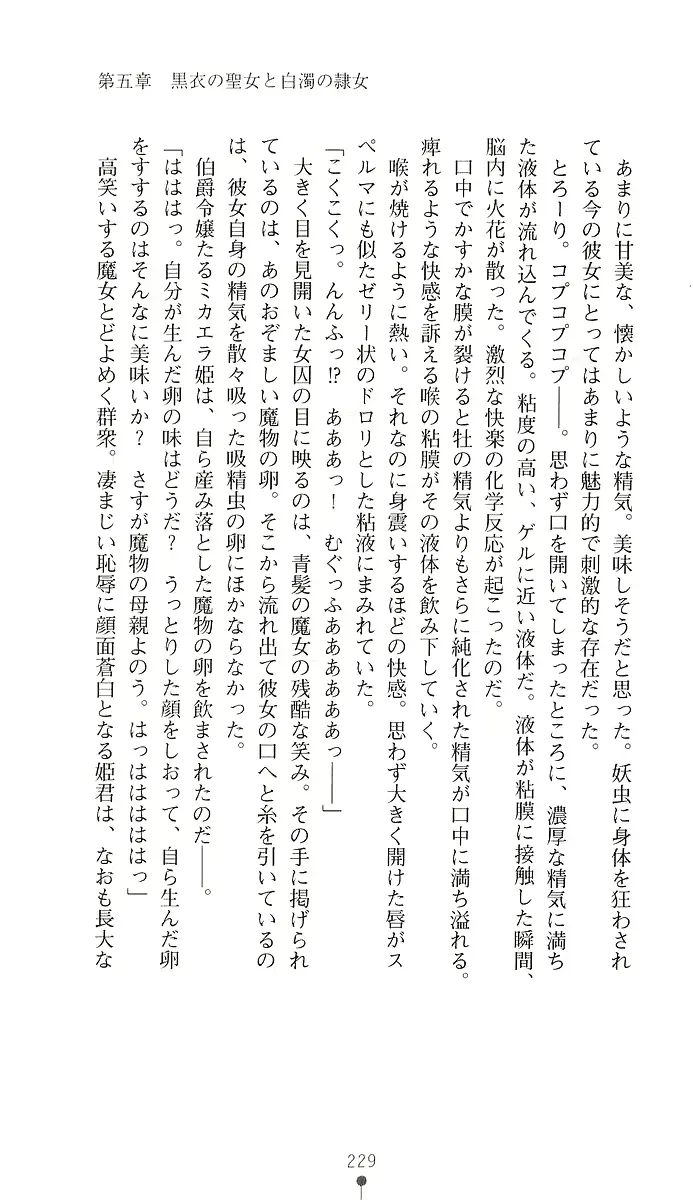 第五章　黒衣の聖女と白濁の隷女
あまりに甘美な、懐かしいような精気。美味しそうだと思った。妖虫に身体を狂わされ
ている今の彼女にとってはあまりに魅力的で刺激的な存在だった。
とろーり。コプコプコプ――。思わず口を開いてしまったところに、濃厚な精気に満ち
た液体が流れ込んでくる。粘度の高い、ゲルに近い液体だ。液体が粘膜に接触した瞬間、
脳内に火花が散った。激烈な快楽の化学反応が起こったのだ。
口中でかすかな膜が裂けると牡の精気よりもさらに純化された精気が口中に満ち溢れる。
痺れるような快感を訴える喉の粘膜がその液体を飲み下していく。
喉が焼けるように熱い。それなのに身震いするほどの快感。思わず大きく開けた唇がス
ペルマにも似たゼリー状のドロリとした粘液にまみれていた。
「こくこくっ。んんふっ!?　あああっ！　むぐっふああああああっ――」
大きく目を見開いた女囚の目に映るのは、青髪の魔女の残酷な笑み。その手に掲げられ
ているのは、あのおぞましい魔物の卵。そこから流れ出て彼女の口へと糸を引いているの
は、彼女自身の精気を散々吸った吸精虫の卵にほかならなかった。
伯爵令嬢たるミカエラ姫は、自ら産み落とした魔物の卵を飲まされたのだ――。
「はははっ。自分が生んだ卵の味はどうだ？　うっとりした顔をしおって、自ら生んだ卵
をすするのはそんなに美味いか？　さすが魔物の母親よのう。はっはははははっ」
高笑いする魔女とどよめく群衆。凄まじい恥辱に顔面蒼白となる姫君は、なおも長大な
229